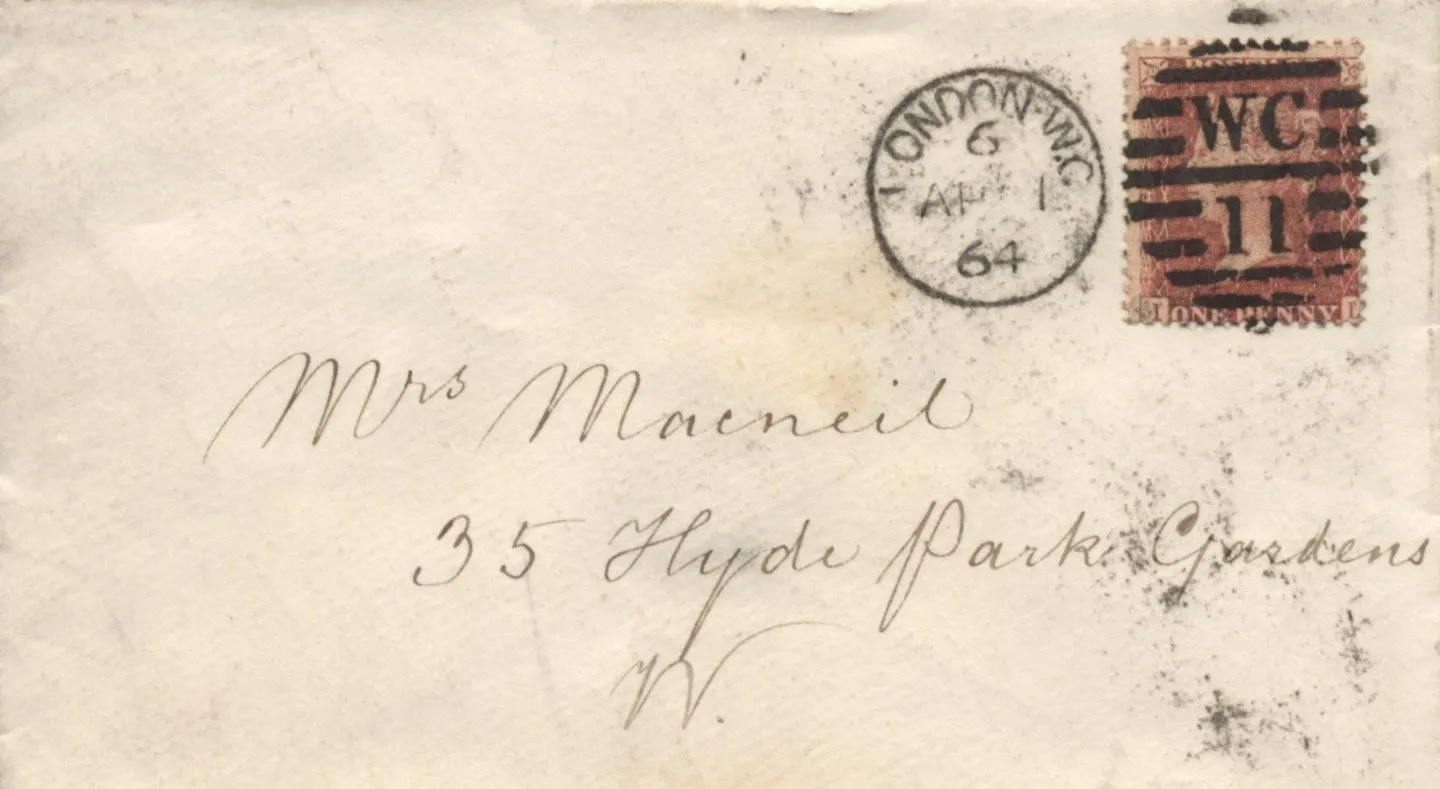 LONDON·W.C
6
AP 1
64
WC
11
ONE PENNY
Mrs Macneil
35 Hyde Park Gardens
W.